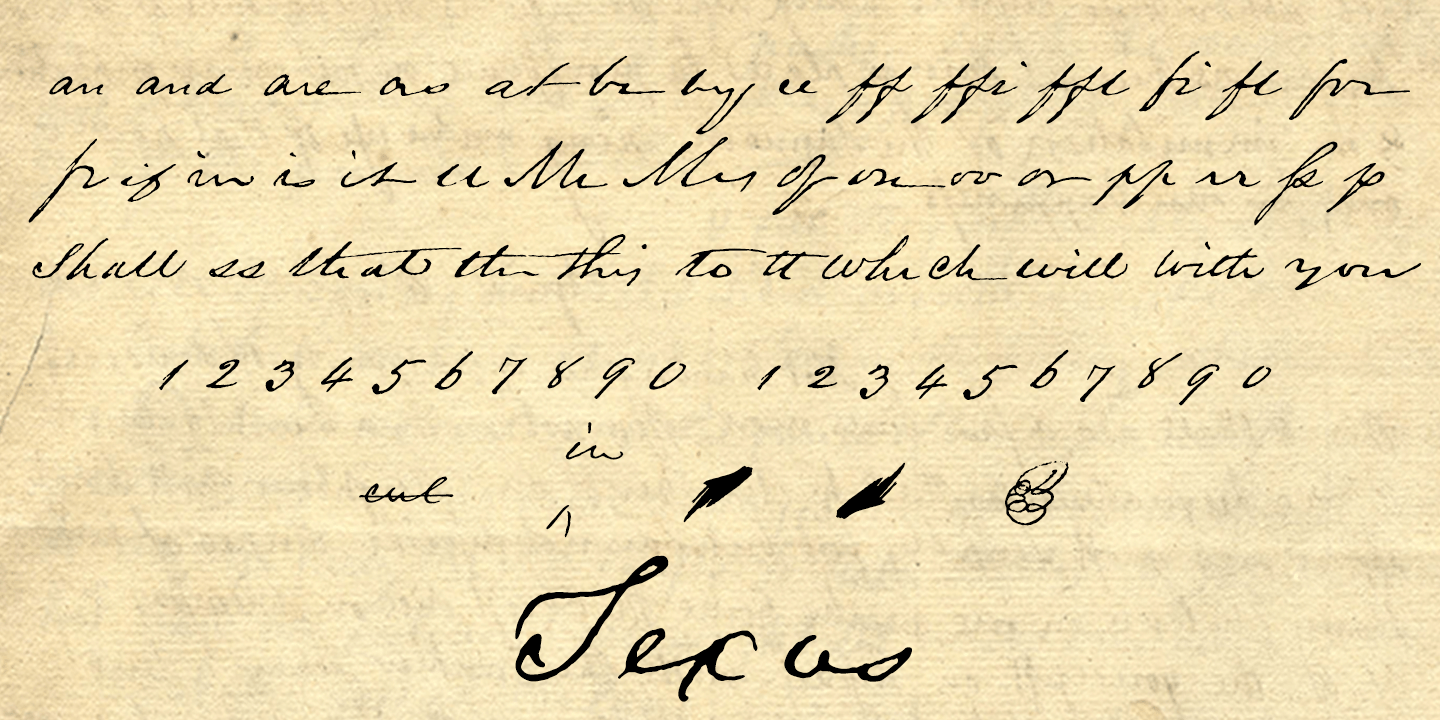 an and are as at be by ee ff ffi ffl fi fl for
fr if in is it ll Mr Mrs of on oo or pp rr ſs p
Shall ss that the this to tt which will with you
1 2 3 4 5 6 7 8 9 0 1 2 3 4 5 6 7 8 9 0
in
cut
^
Texas